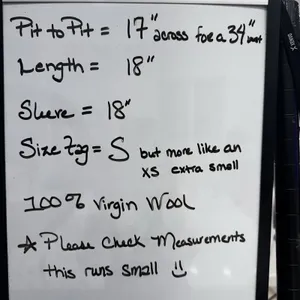 Pit to Pit = 17" across for a 34" bust
Length = 18"
Sleeve = 18"
Size Tag = S but more like an
XS extra small
100% Virgin Wool
☆ Please Check Measurements
this runs small :)